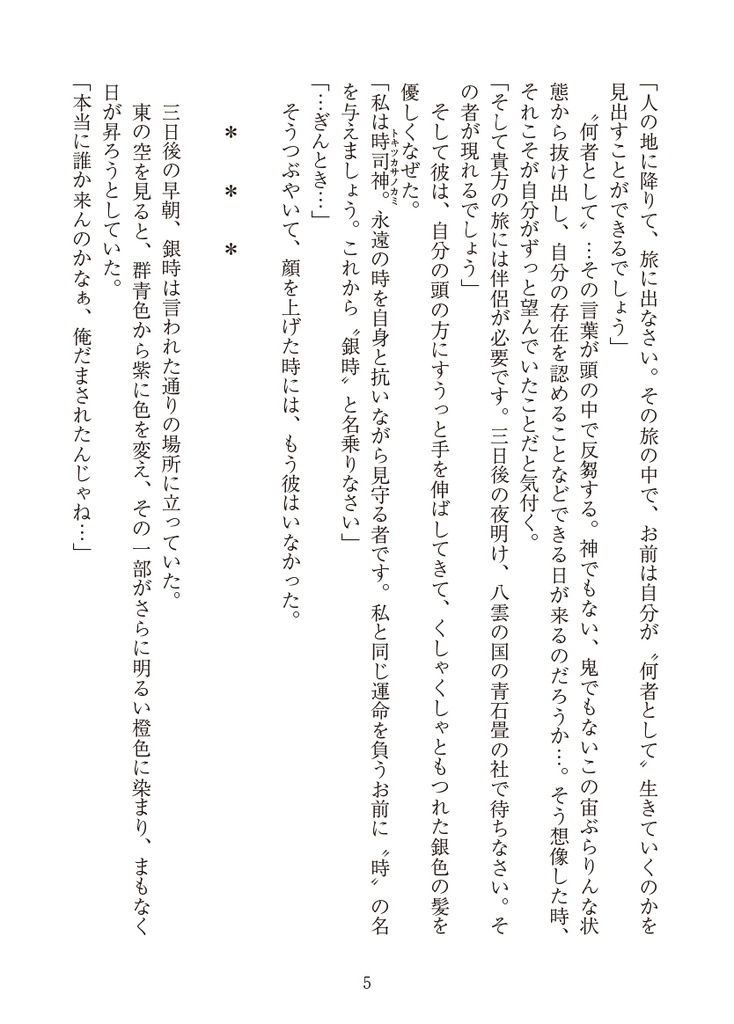 「人の地に降りて、旅に出なさい。その旅の中で、お前は自分が〝何者として〟生きていくのかを
見出すことができるでしょう」
〝何者として〟…その言葉が頭の中で反芻する。神でもない、鬼でもないこの宙ぶらりんな状
態から抜け出し、自分の存在を認めることなどできる日が来るのだろうか…。そう想像した時、
それこそが自分がずっと望んでいたことだと気付く。
「そして貴方の旅には伴侶が必要です。三日後の夜明け、八雲の国の青石畳の社で待ちなさい。そ
の者が現れるでしょう」
そして彼は、自分の頭の方にすうっと手を伸ばしてきて、くしゃくしゃともつれた銀色の髪を
優しくなぜた。
トキツカサノカミ
「私は時司神。永遠の時を自身と抗いながら見守る者です。私と同じ運命を負うお前に〝時〟の名
を与えましょう。これから〝銀時〟と名乗りなさい」
「…ぎんとき…」
そうつぶやいて、顔を上げた時には、もう彼はいなかった。
＊　＊　＊
三日後の早朝、銀時は言われた通りの場所に立っていた。
東の空を見ると、群青色から紫に色を変え、その一部がさらに明るい橙色に染まり、まもなく
日が昇ろうとしていた。
「本当に誰か来んのかなぁ、俺だまされたんじゃね…」
5